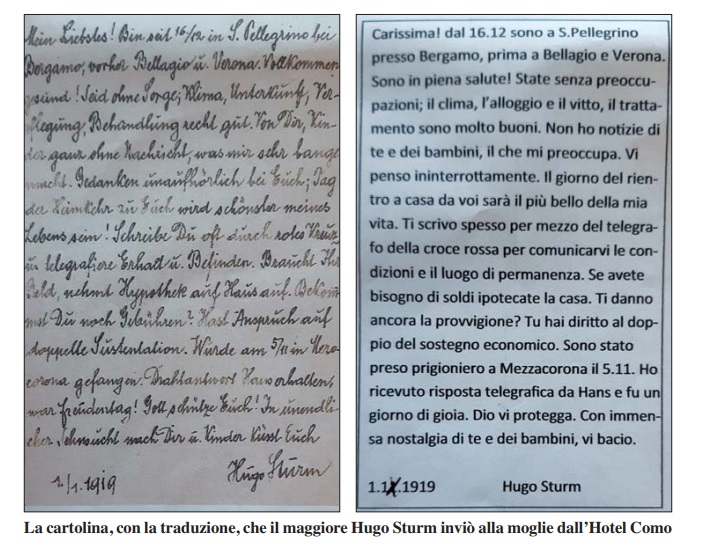 Mein Liebstes! Bin seit 16/12 in S. Pellegrino bei
Bergamo, vorher Bellagio u. Verona. Vollkommen
gesund! Seid ohne Sorge; Klima, Unterkunft, Ver-
pflegung, Behandlung recht gut. Von Dir, Kin-
der ganz ohne Nachricht, was mir sehr bange
macht. Gedanken unaufhörlich bei Euch; Tag
der Heimkehr zu Euch wird schönster meines
Lebens sein! Schreibe Du oft durch rotes Kreuz
u. telegrafiere Erhalt u. Befinden. Braucht Ihr
Geld, nehmt Hypothek auf Haus auf. Bekom-
mst Du noch Gebühren? Hast Anspruch auf
doppelte Sustentation. Wurde am 5/11 in Mezo-
corona gefangen. Drahtantwort Hans erhalten,
war Freudentag! Gott schütze Euch! In unendli-
cher Sehnsucht nach Dir u. Kinder küsst Euch
1./1.1919 Hugo Sturm
Carissima! dal 16.12 sono a S.Pellegrino
presso Bergamo, prima a Bellagio e Verona.
Sono in piena salute! State senza preoccu-
pazioni; il clima, l'alloggio e il vitto, il tratta-
mento sono molto buoni. Non ho notizie di
te e dei bambini, il che mi preoccupa. Vi
penso ininterrottamente. Il giorno del rien-
tro a casa da voi sarà il più bello della mia
vita. Ti scrivo spesso per mezzo del telegra-
fo della croce rossa per comunicarvi le con-
dizioni e il luogo di permanenza. Se avete
bisogno di soldi ipotecate la casa. Ti danno
ancora la provvigione? Tu hai diritto al dop-
pio del sostegno economico. Sono stato
preso prigioniero a Mezzacorona il 5.11. Ho
ricevuto risposta telegrafica da Hans e fu un
giorno di gioia. Dio vi protegga. Con immen-
sa nostalgia di te e dei bambini, vi bacio.
1.1.1919 Hugo Sturm
La cartolina, con la traduzione, che il maggiore Hugo Sturm inviò alla moglie dall'Hotel Como